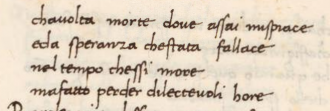 chavolta morte dove assai mispiace
eda speranza chestata fallace
nel tempo chessi more
mafatto perder dilectevoli hore